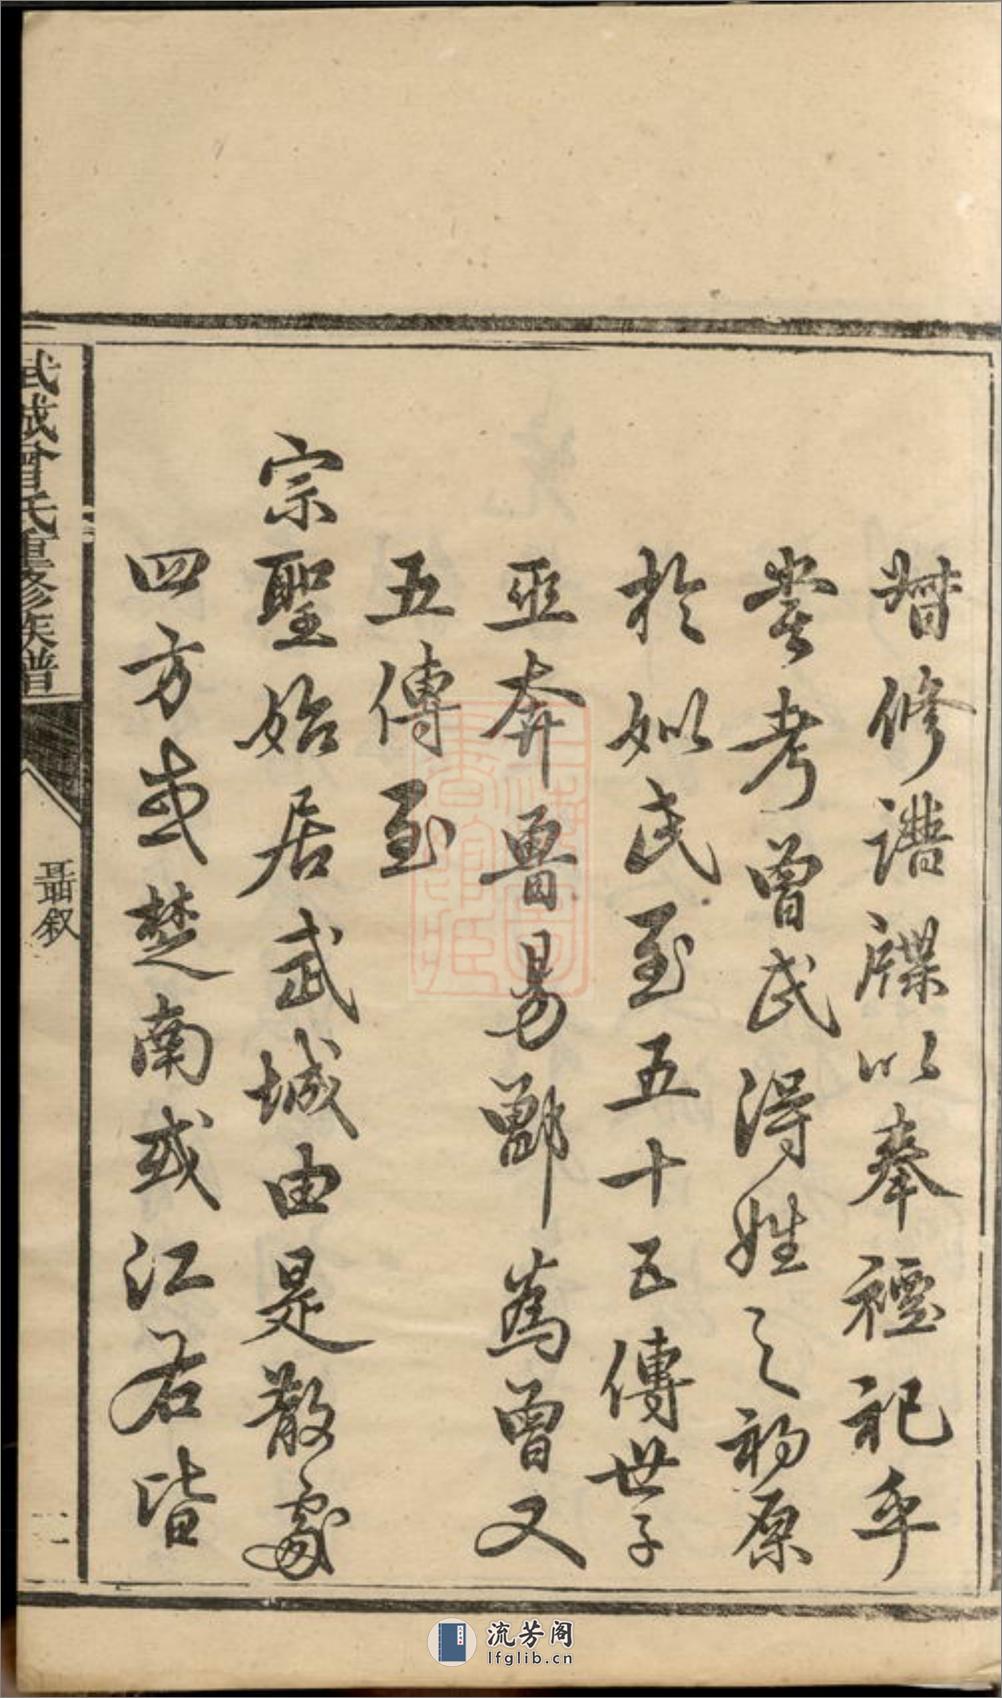 時修譜牒以奉禋祀乎
嘗考曾氏得姓之初原
於姒氏至五十五傳世子
巫奔魯易鄫爲曾又
五傳至
宗聖始居武城由是散處
四方或楚南或江右皆
武城曾氏重修族譜
聶叙
二
流芳阁
lfglib.cn